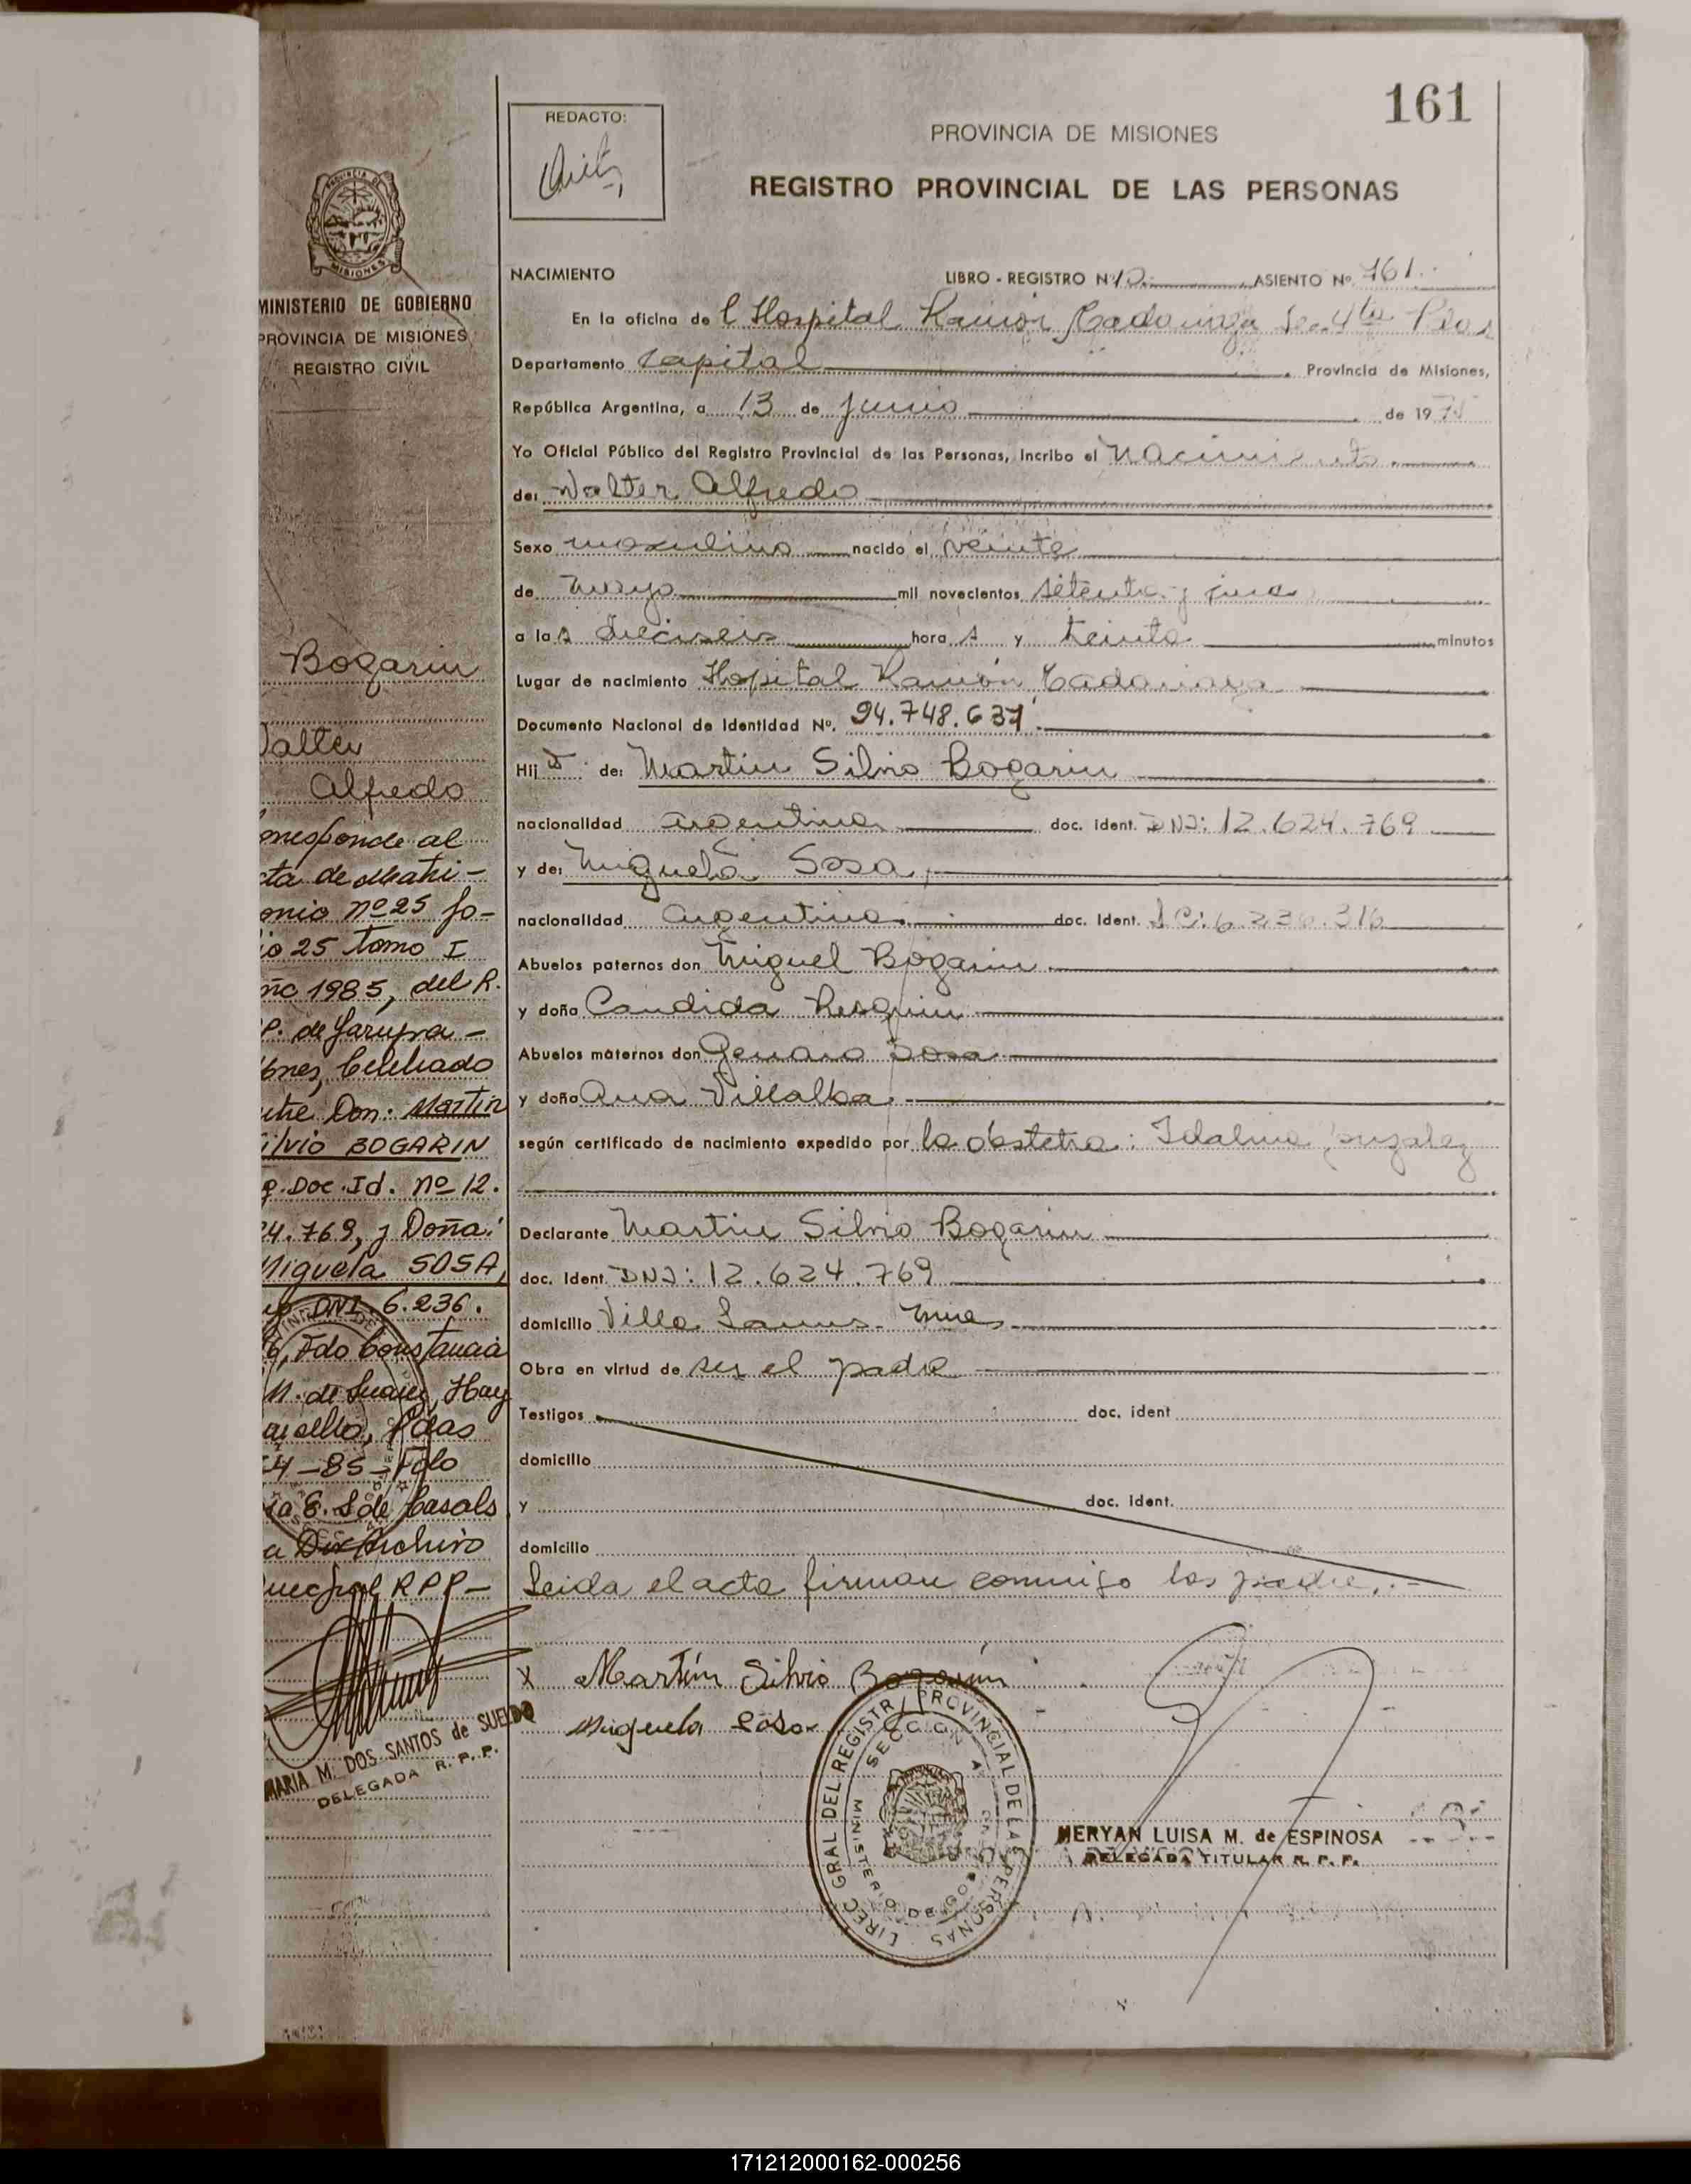 161
REDACTO:
PROVINCIA DE MISIONES
REGISTRO PROVINCIAL DE LAS PERSONAS
MISIONES
MINISTERIO DE GOBIERNO
PROVINCIA DE MISIONES
REGISTRO CIVIL
NACIMIENTO LIBRO - REGISTRO Nº ASIENTO Nº 161
En la oficina de l Hospital Ramón Sec. 4ta Pdas
Departamento Capital Provincia de Misiones,
República Argentina, a 13 de junio de 19
Yo Oficial Público del Registro Provincial de las Personas, incribo el Nacimiento
de: Walter Alfredo
Sexo masculino nacido el veinte
de mayo mil novecientos setenta y
a las dieciseis hora s y treinta minutos
Lugar de nacimiento Hospital Ramón
Documento Nacional de Identidad Nº. 94.748.637
Hijo de: Martin Silvio Bogarin
nacionalidad argentina doc. ident. DNI: 12.624.769
y de: Miguela Sosa
nacionalidad argentina doc. ident. LC: 6.236.316
Abuelos paternos don Miguel Bogarin
y doña Candida Resquin
Abuelos maternos don Genaro Sosa
y doña Ana Villalba
según certificado de nacimiento expedido por la obstetra: Idalina Gonzalez
Declarante Martin Silvio Bogarin
doc. ident. DNI: 12.624.769
domicilio Villa Lanus - Mnes
Obra en virtud de ser el padre
Testigos doc. ident
domicilio
y doc. ident.
domicilio
Leida el acta firman conmigo los padres.-
X Martín Silvio Bogarín
Miguela Sosa
DIREC GRAL DEL REGISTRO PROVINCIAL DE LAS PERSONAS
SECCION 4ª
MINISTERIO DE GOB
MERYAN LUISA M. de ESPINOSA
DELEGADA TITULAR R. P. P.
Bogarin
Walter
Alfredo
orresponde al
cta de Matri-
onio nº 25 fo-
io 25 Tomo I
año 1985, del R.
P. de Garupa -
ones, Celebrado
ntre Don: Martin
Silvio BOGARIN
g. Doc. Id. nº 12.
24.769, y Doña:
Miguela SOSA,
DNI 6.236.
6, Fdo Constancia
M. de Suarez, Hay
un sello, Pdas
4-85- Fdo
E. S de Casals
a Archivo
RPP-
MARIA M. DOS SANTOS de SUELDO
DELEGADA R. P. P.
171212000162-000256